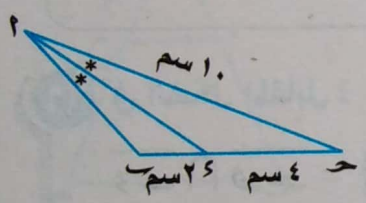 م
١٠ سم
* *
ب ٢ سم ء ٤ سم حـ